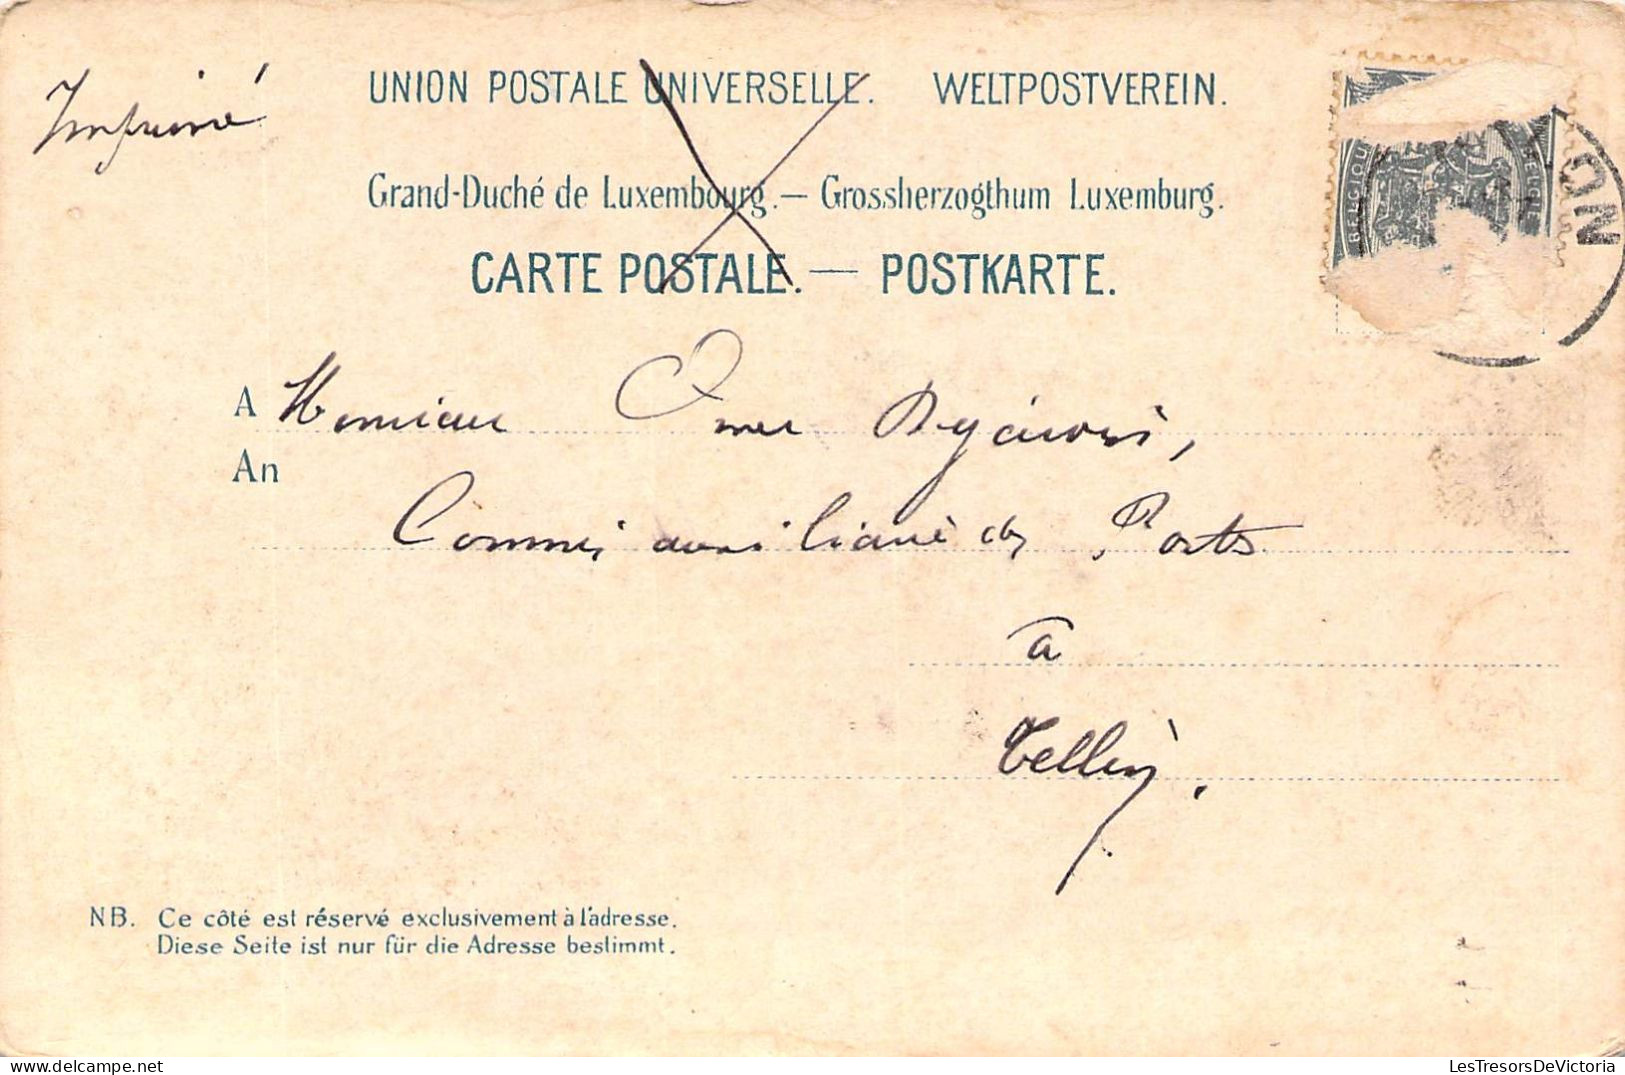 Imprimé
UNION POSTALE UNIVERSELLE. WELTPOSTVEREIN.
Grand-Duché de Luxembourg. — Grossherzogthum Luxemburg.
CARTE POSTALE. — POSTKARTE.
A Monsieur Omer
An
Commis auxiliaire des Postes
à
Tellin.
NB. Ce côté est réservé exclusivement à l'adresse.
Diese Seite ist nur für die Adresse bestimmt.
LesTresorsDeVictoria